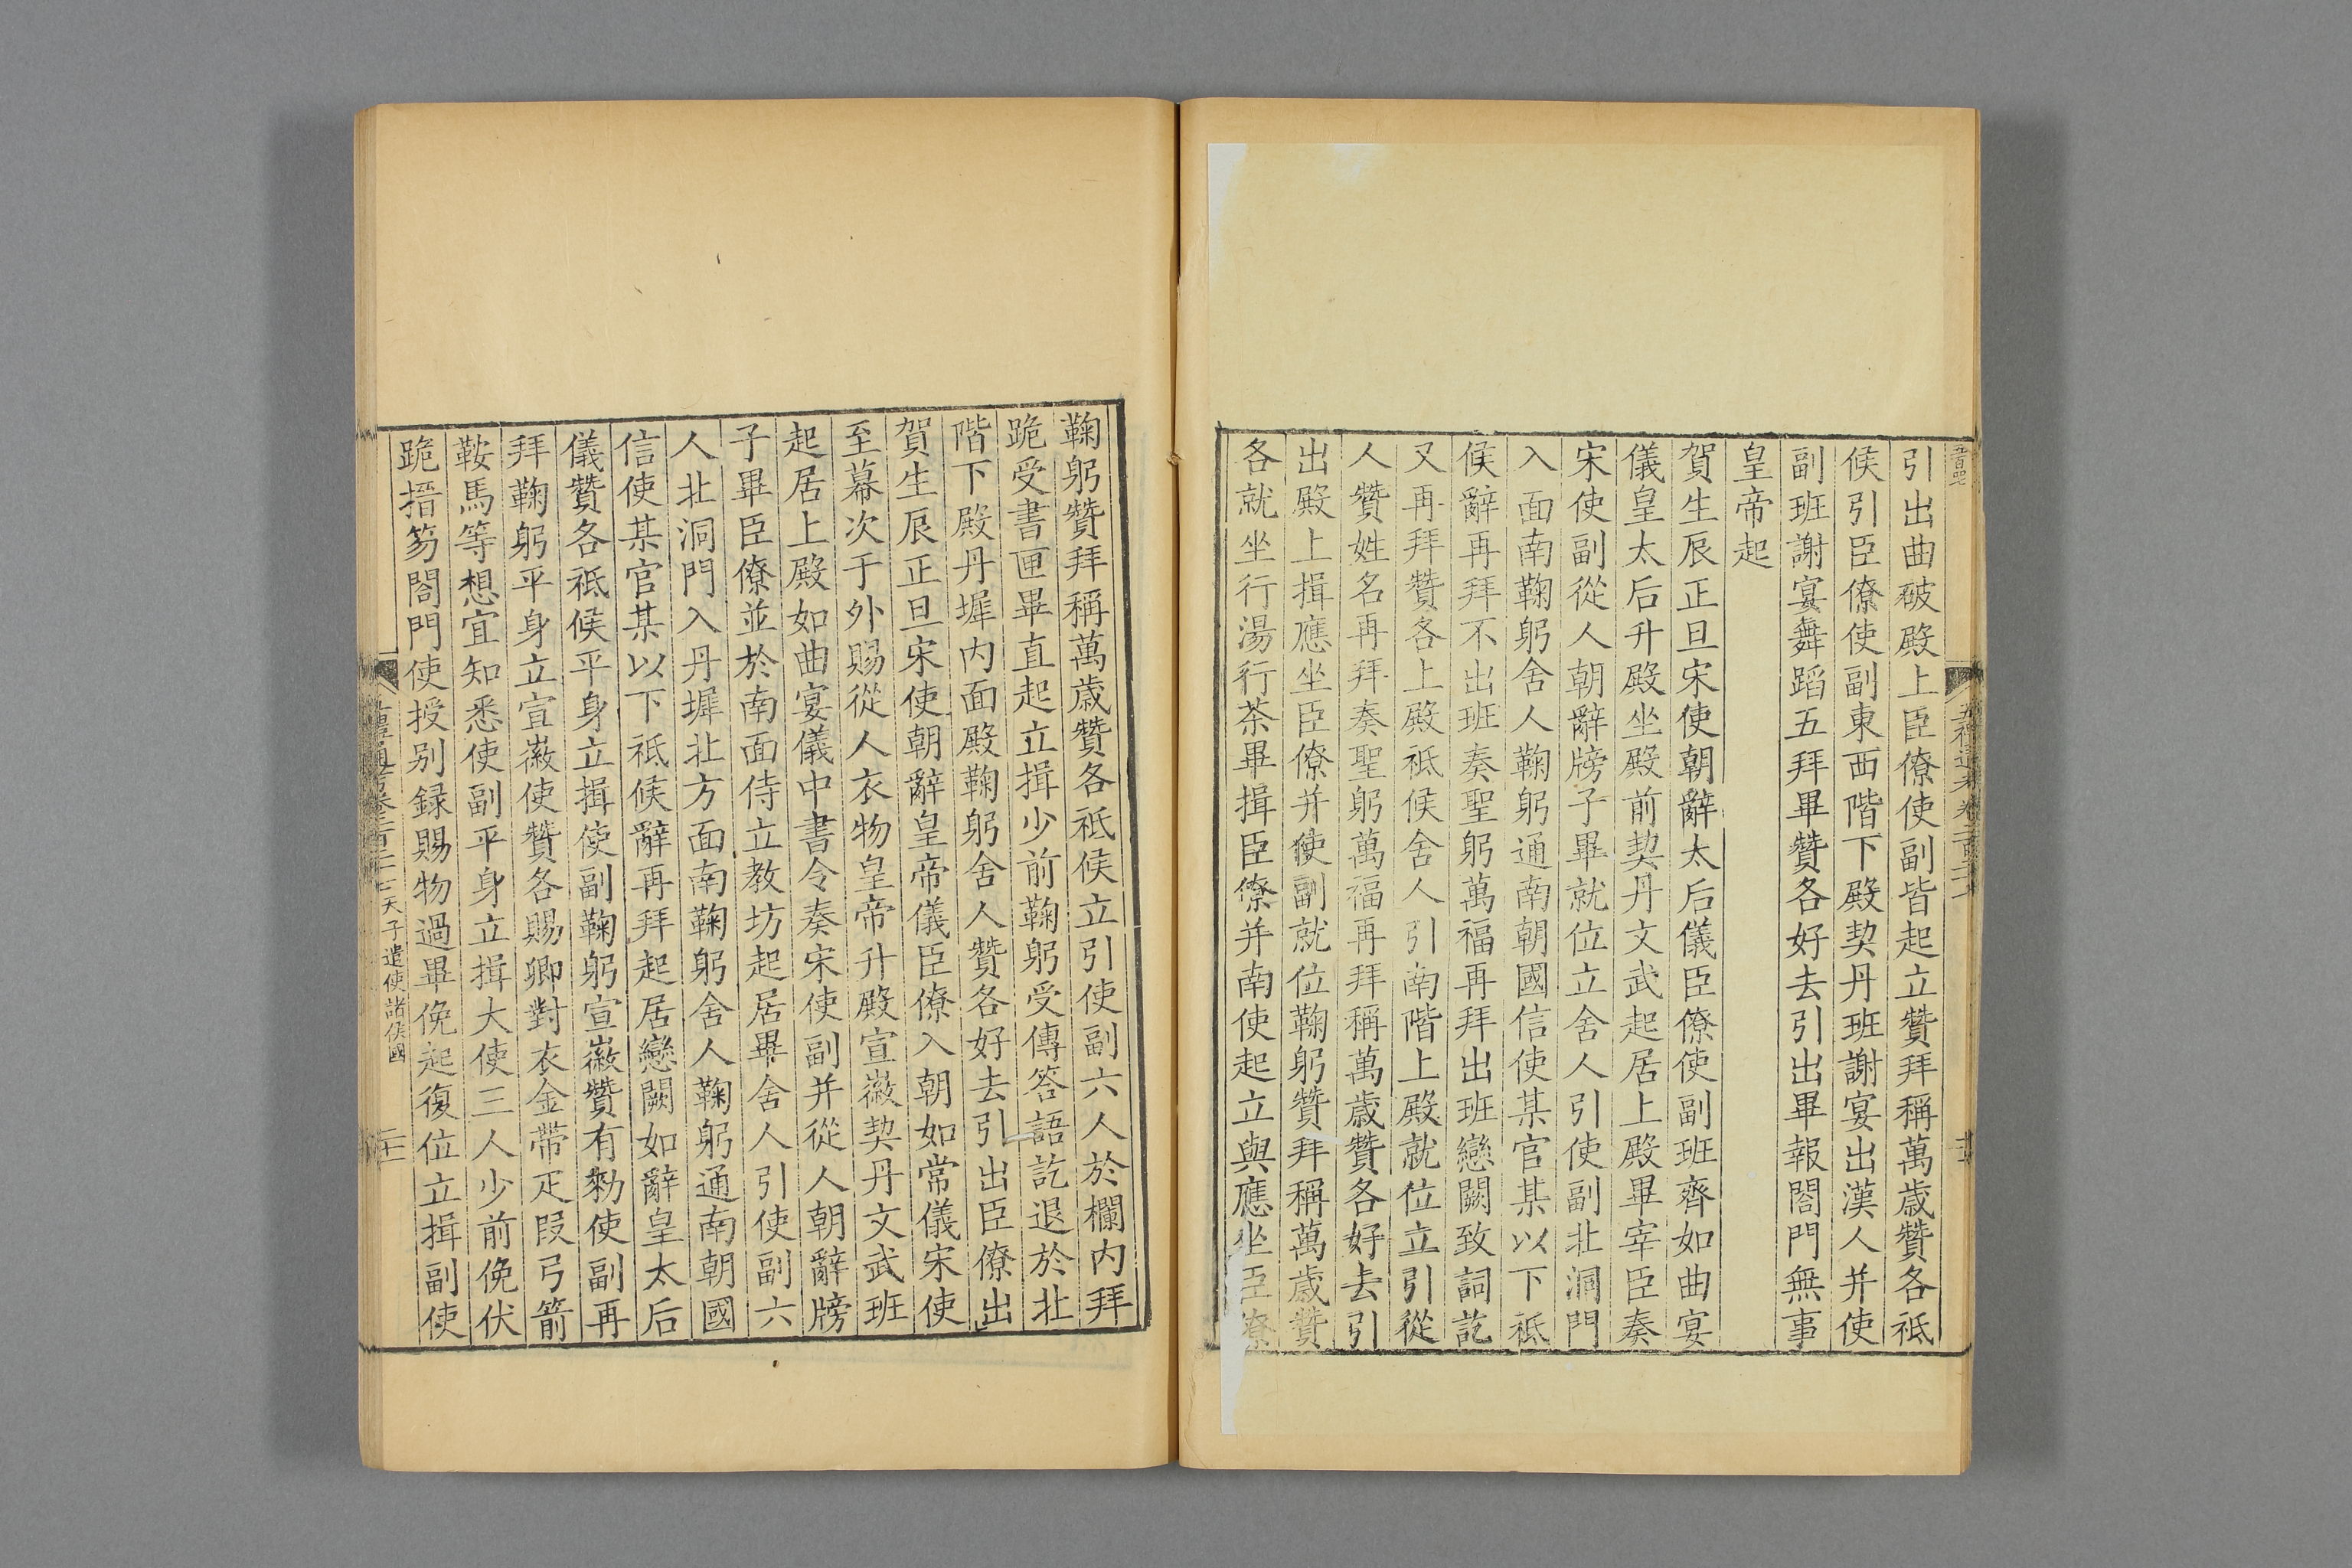 引出曲破殿上臣僚使副皆起立贊拜稱萬歲贊各祗
候引臣僚使副東西階下殿契丹班謝宴出漢人并使
副班謝宴舞蹈五拜畢贊各好去引出畢報閤門無事
皇帝起
賀生辰正旦宋使朝辭太后儀臣僚使副班齊如曲宴
儀皇太后升殿坐殿前契丹文武起居上殿畢宰臣奏
宋使副從人朝辭牓子畢就位立舍人引使副北洞門
入面南鞠躬舍人鞠躬通南朝國信使某官某以下祗
候辭再拜不出班奏聖躬萬福再拜出班戀闕致詞訖
又再拜贊各上殿祗候舍人引南階上殿就位立引從
人贊姓名再拜奏聖躬萬福再拜稱萬歲贊各好去引
出殿上揖應坐臣僚并使副就位鞠躬贊拜稱萬歲贊
各就坐行湯行茶畢揖臣僚并南使起立與應坐臣僚
鞠躬贊拜稱萬歲贊各祗候立引使副六人於欄內拜
跪受書匣畢直起立揖少前鞠躬受傳答語訖退於北
階下殿丹墀內面殿鞠躬舍人贊各好去引出臣僚出
賀生辰正旦宋使朝辭皇帝儀臣僚入朝如常儀宋使
至幕次于外賜從人衣物皇帝升殿宣徽契丹文武班
起居上殿如曲宴儀中書令奏宋使副并從人朝辭牓
子畢臣僚並於南面侍立教坊起居畢舍人引使副六
人北洞門入丹墀北方面南鞠躬舍人鞠躬通南朝國
信使某官某以下祗候辭再拜起居戀闕如辭皇太后
儀贊各祗候平身立揖使副鞠躬宣徽贊有勑使副再
拜鞠躬平身立宣徽使贊各賜卿對衣金帶疋段弓箭
鞍馬等想宜知悉使副平身立揖大使三人少前俛伏
跪搢笏閤門使授别録賜物過畢俛起復位立揖副使
天子遣使諸侯國